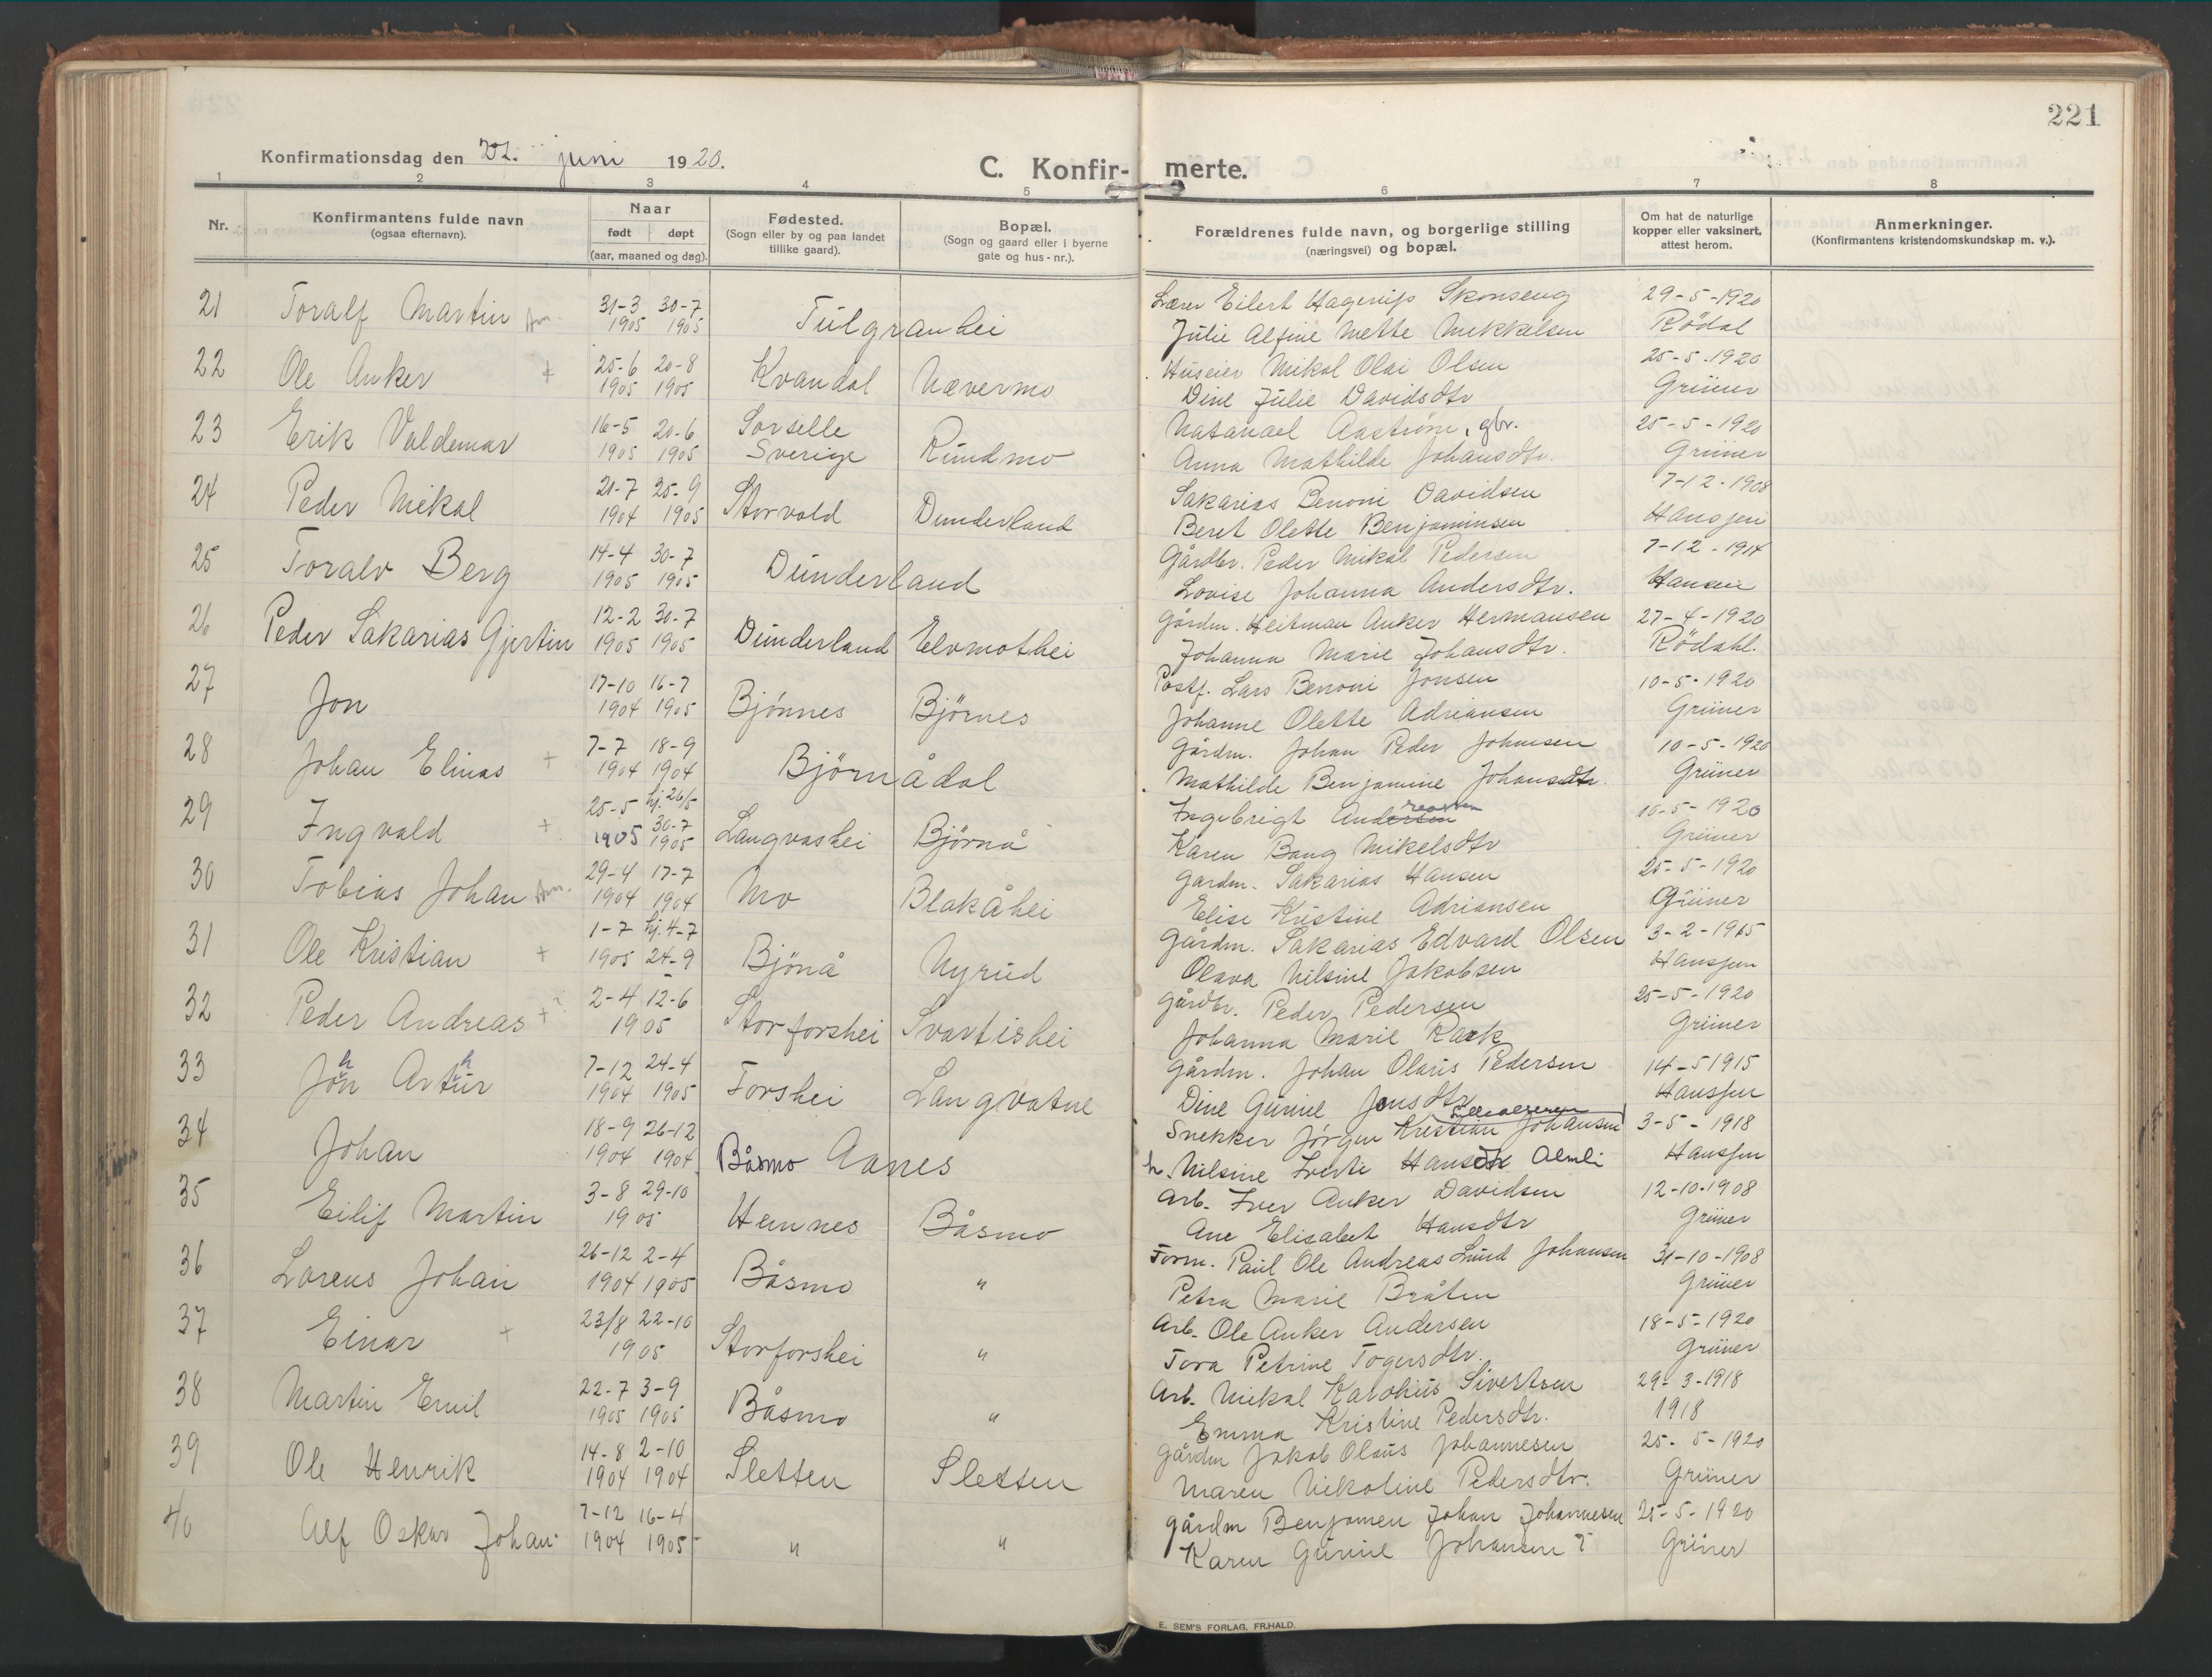 221
Konfirmationsdag den 22. juni 1920.
C. Konfirmerte.
1 2 3 4 5 6 7 8
Nr. Konfirmantens fulde navn (ogsaa efternavn). Naar født døpt (aar, maaned og dag). Fødested. (Sogn eller by og paa landet tillike gaard). Bopæl. (Sogn og gaard eller i byerne gate og hus-nr.). Forældrenes fulde navn, og borgerlige stilling (næringsvei) og bopæl. Om hat de naturlige kopper eller vaksinert, attest herom. Anmerkninger. (Konfirmantens kristendomskundskap m. v.).
21 Toralf Martin 31-3 30-7 Tulgranhei Lærer Eilert Hagerups Skonseng 29-5-1920
1905 1905 Julie Alfine Mette Mikkelsen Rödal
22 Ole Anker + 25-6 20-8 Kvandal Nævermo Huseier Mikal Olai Olsen 25-5-1920
1905 1905 Dine Julie Davidsdtr Grüner
23 Erik Valdemar 16-5 20-6 Sorselle Rundmo Natanael Aastrøm, gbr. 25-5-1920
1905 1905 Sverige Anna Mathilde Johansdtr. Grüner
24 Peder Mikal 21-7 25-9 Storvold Dunderland Sakarias Benoni Davidsen 7-12-1908
1904 1905 Beret Olette Benjaminsen Hanssen
25 Toralv Berg 14-4 30-7 Dunderland Gårdbr. Peder Mikal Pedersen 7-12-1914
1905 1905 Lovise Johanna Andersdtr. Hansen
26 Peder Sakarias Gjertin 12-2 30-7 Dunderland Elvmothei Gårdm. Heitman Anker Hermansen 27-4-1920
1905 1905 Johanna Marie Johansdtr. Rödahl.
27 Jon 17-10 16-7 Bjönnes Björnes Postf. Lars Benoni Jonsen 10-5-1920
1904 1905 Johanne Olette Adriansen Grüner
28 Johan Elinas + 7-7 18-9 Björnådal Gårdm. Johan Peder Johnsen 10-5-1920
1904 1904 Mathilde Benjamine Johansdtr. Grüner
29 Ingvald + 25-5 hj. 26/5 Langvashei Björnå Ingebrigt Andersen reassen 10-5-1920
1905 30-7 1905 Karen Bang Mikelsdtr Grüner
30 Tobias Johan 29-4 17-7 Mo Blakåhei Gardm. Sakarias Hansen 25-5-1920
1904 1904 Elise Kristine Adriansen Grüner
31 Ole Kristian + 1-7 hj. 4-7 Bjönå Nyrud Gårdm. Sakarias Edvard Olsen 3-2-1915
1905 24-9 Olava Nilsine Jakobsen Hanssen
32 Peder Andreas + 2-4 12-6 Storforshei Svartishei Gårdbr. Peder Pedersen 25-5-1920
1905 Johanna Marie Rack Grüner
33 John Arthur 7-12 24-4 Forshei Langvatne Gårdm. Johan Olaus Pedersen 14-5 1915
1904 1905 Dine Gurine Jonsdtr Hanssen
34 Johan 18-9 26-12 Båsmo Aanes Snekker Jörgen Kristian Johansen 3-5-1918
1904 1904 h. Nilsine Hansdtr Almli Hanssen
35 Eilif Martin 3-8 29-10 Hemnes Båsmo Arb. Iver Anker Davidsen 12-10-1908
1905 Ane Elisabet Hansdtr Grüner
36 Lorens Johan 26-12 2-4 Båsmo " Form. Paul Ole Andreas Lund Johansen 31-10-1908
1904 1905 Petra Marie Bråten Grüner
37 Einar + 23/8 22-10 Storforshei " Arb. Ole Anker Andersen 18-5-1920
1905 Tora Petrine Togersdtr. Grüner
38 Martin Emil 22-7 3-9 Båsmo " Arb. Mikal Karolius Sivertsen 29-3-1918
1905 1905 Emma Kristine Pedersdtr. 1918
39 Ole Henrik 14-8 2-10 Sletten Sletten Gårdm Jakob Olaus Johannesen 25-5-1920
1904 1904 Maren Nikoline Pedersdtr. Grüner
40 Alf Oskar Johan 7-12 16-4 " " Gårdm Benjamen Johan Johannesen 25-5-1920
1904 1905 Karen Gurine Johansen Grüner
E. SEM'S FORLAG, FR.HALD.